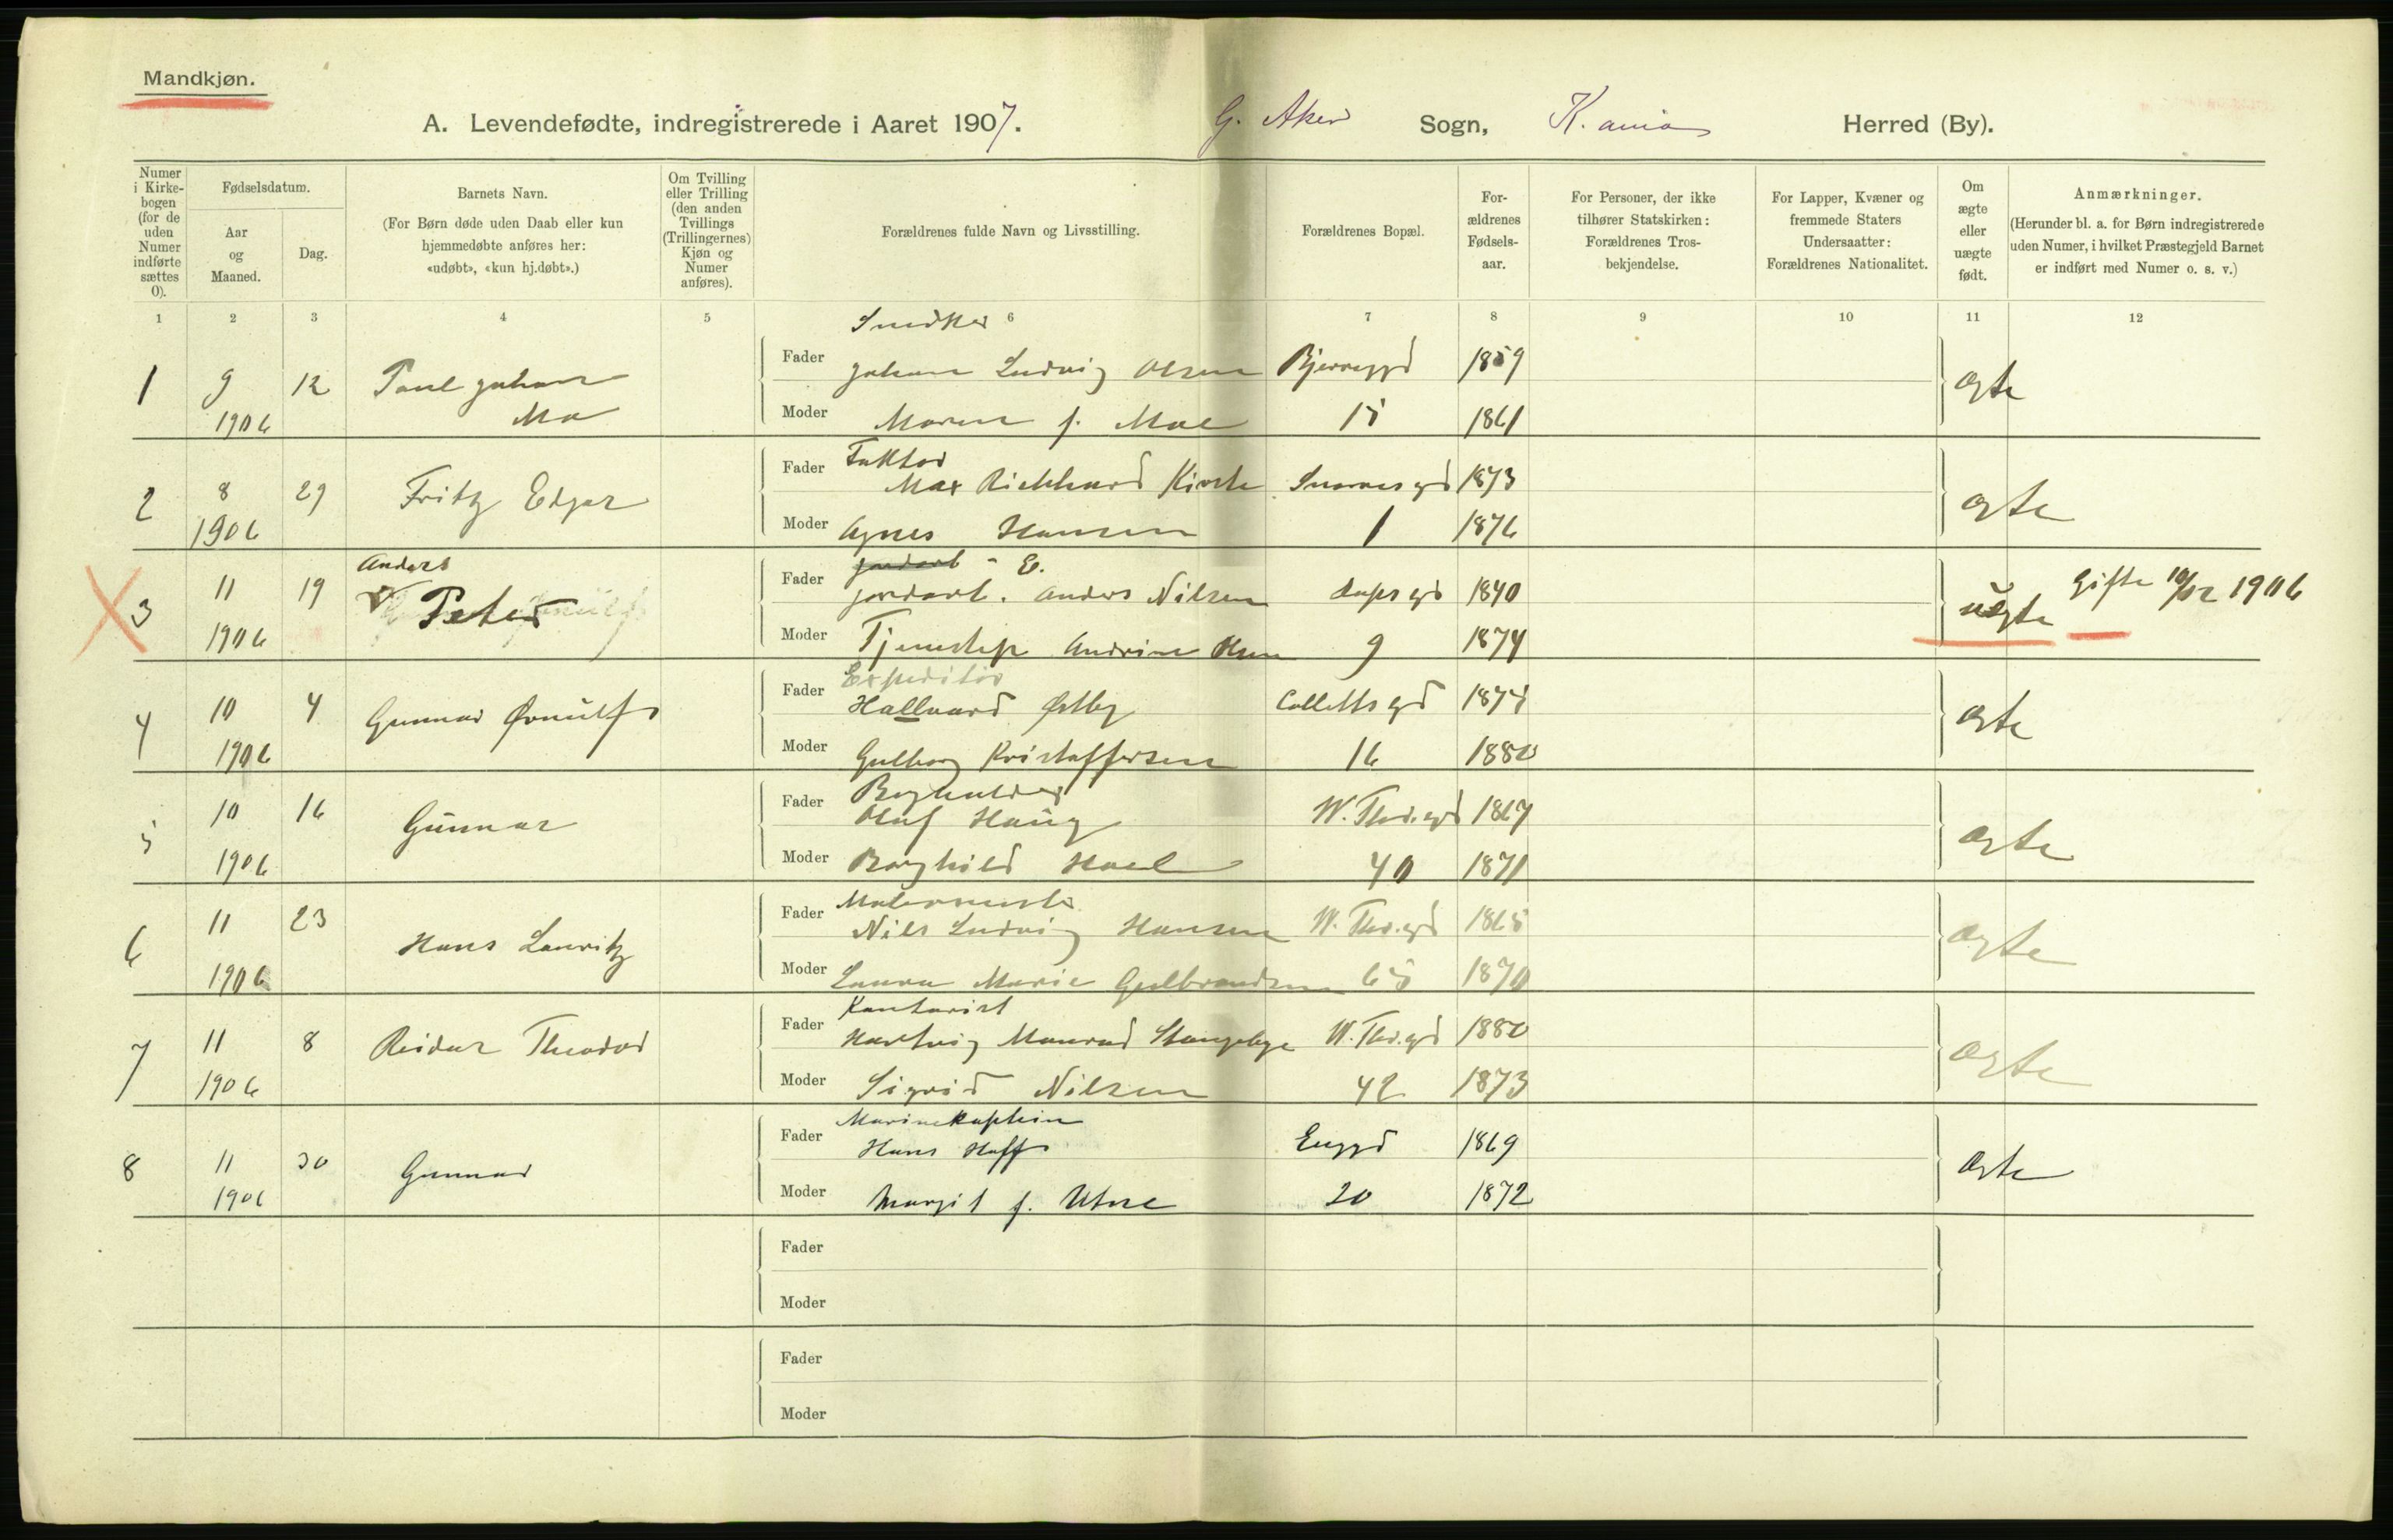 Mandkjøn.
A. Levendefødte, indregistrerede i Aaret 1907. G. Aker Sogn, K.ania Herred (By).
Numer i Kirkebogen (for de uden Numer indførte sættes 0).
Fødselsdatum.
Aar og Maaned.
Dag.
Barnets Navn.
(For Børn døde uden Daab eller kun hjemmedøbte anføres her: «udøbt», «kun hj.døbt».)
Om Tvilling eller Trilling (den anden Tvillings (Trillingernes) Kjøn og Numer anføres).
Forældrenes fulde Navn og Livsstilling.
Forældrenes Bopæl.
Forældrenes Fødselsaar.
For Personer, der ikke tilhører Statskirken: Forældrenes Trosbekjendelse.
For Lapper, Kvæner og fremmede Staters Undersaatter: Forældrenes Nationalitet.
Om ægte eller uægte født.
Anmærkninger.
(Herunder bl. a. for Børn indregistrerede uden Numer, i hvilket Præstegjeld Barnet er indført med Numer o. s. v.)
1 2 3 4 5 6 7 8 9 10 11 12
Snedker
1 9 12 Paul Johan Fader Johan Ludvig Olsen 1859 ægte
1906 Moe Moder Maren f. Moe 15 1861
Faktor
2 8 29 Fritz Edgar Fader Max Richhard 1873 ægte
1906 Moder Agnes Hansen 1 1876
Anders jordarb - E.
3 11 19 Peter Fader jordarb. Anders Nilsen 1840 uægte Gifte 10/12 1906
1906 Moder Andrine 9 1874
Expeditør
4 10 4 Gunnar Ørnulf Fader Hallvard Østby Colletts gd ægte
1906 Moder Gulborg Kristoffersen 16 1880
Bogholder
5 10 16 Gunnar Fader Olaf Haug W. Thr. gd 1867 ægte
1906 Moder Borghild 40 1871
Malermester
6 11 23 Hans Lauritz Fader Nils Ludvig Hansen W. Thr. gd 1865 ægte
1906 Moder Laura Marie Gulbrandsen 65 1870
Kontorist
7 11 8 Reidar Theodor Fader Hartvig Monrad Stangebye W. Thr. gd 1880 ægte
1906 Moder Sigrid Nilsen 42 1873
Marinekaptein
8 11 30 Gunnar Fader Hans Hoff Enggd 1869 ægte
1906 Moder Margit f. Utne 20 1872
Fader
Moder
Fader
Moder